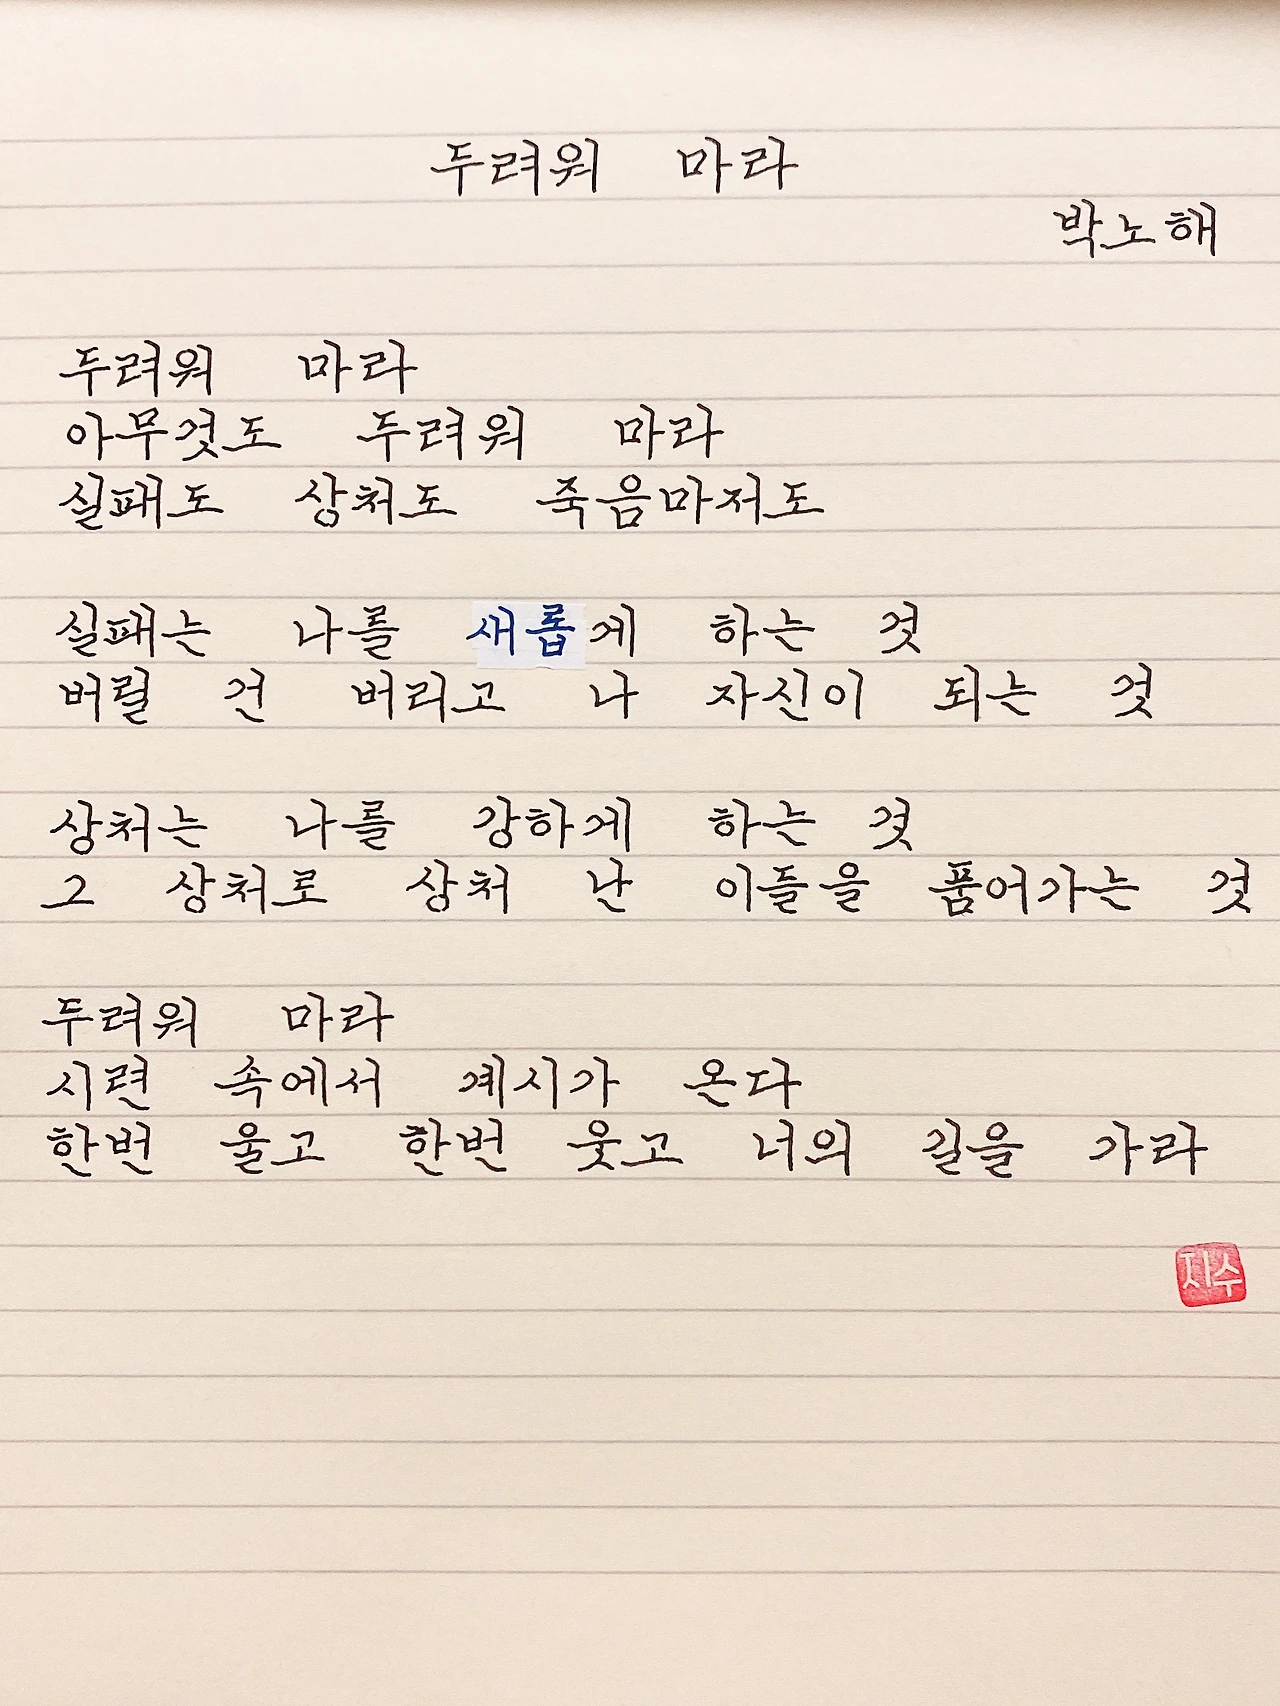 두려워 마라
박노해
두려워 마라
아무것도 두려워 마라
실패도 상처도 죽음마저도
실패는 나를 새롭게 하는 것
버릴 건 버리고 나 자신이 되는 것
상처는 나를 강하게 하는 것
그 상처로 상처 난 이들을 품어가는 것
두려워 마라
시련 속에서 계시가 온다
한번 울고 한번 웃고 너의 길을 가라
지수